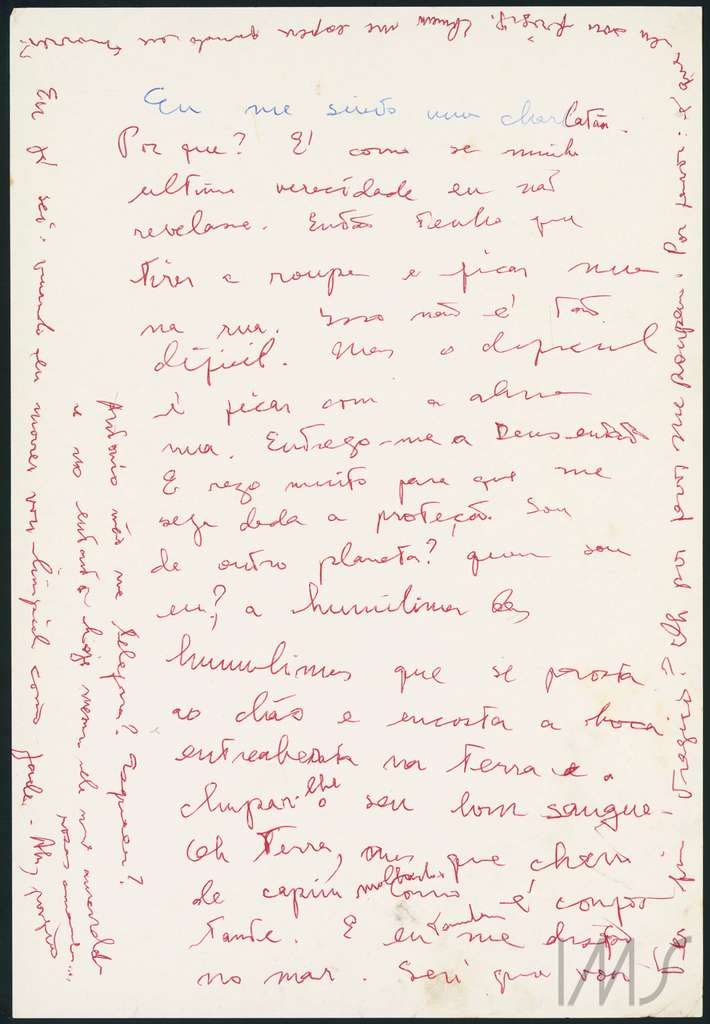 Eu me sinto uma charlatan.
Por que? É como se minha
ultima veracidade eu não
revelasse. Então tenho que
tirar a roupa e ficar nua
na rua. Isso não é tão
dificil. Mas o dificil
é ficar com a alma
nua. Entrego-me a Deus então
E rezo muito para que me
seja dada a proteção. Sou
de outro planeta? quem sou
eu? a humilima das
humilimas que se prosta
ao chão e encosta a boca
entreaberta na terra e a
chupar-lhe o seu bom sangue.
Oh Terra, mas que cheiro
de capim molhado. Como é confor
tante. E eu tambem me dispo
no mar. Será que vou
ter fim tragico? Oh por favor me poupem. Por favor: é que
eu sou fragil. me espera quando eu morrer?
Eu já sei: quando eu morrer vou limpida como jade.
Antonio não me telefona?
e no entanto hoje mesmo ele me
rosas
IMS